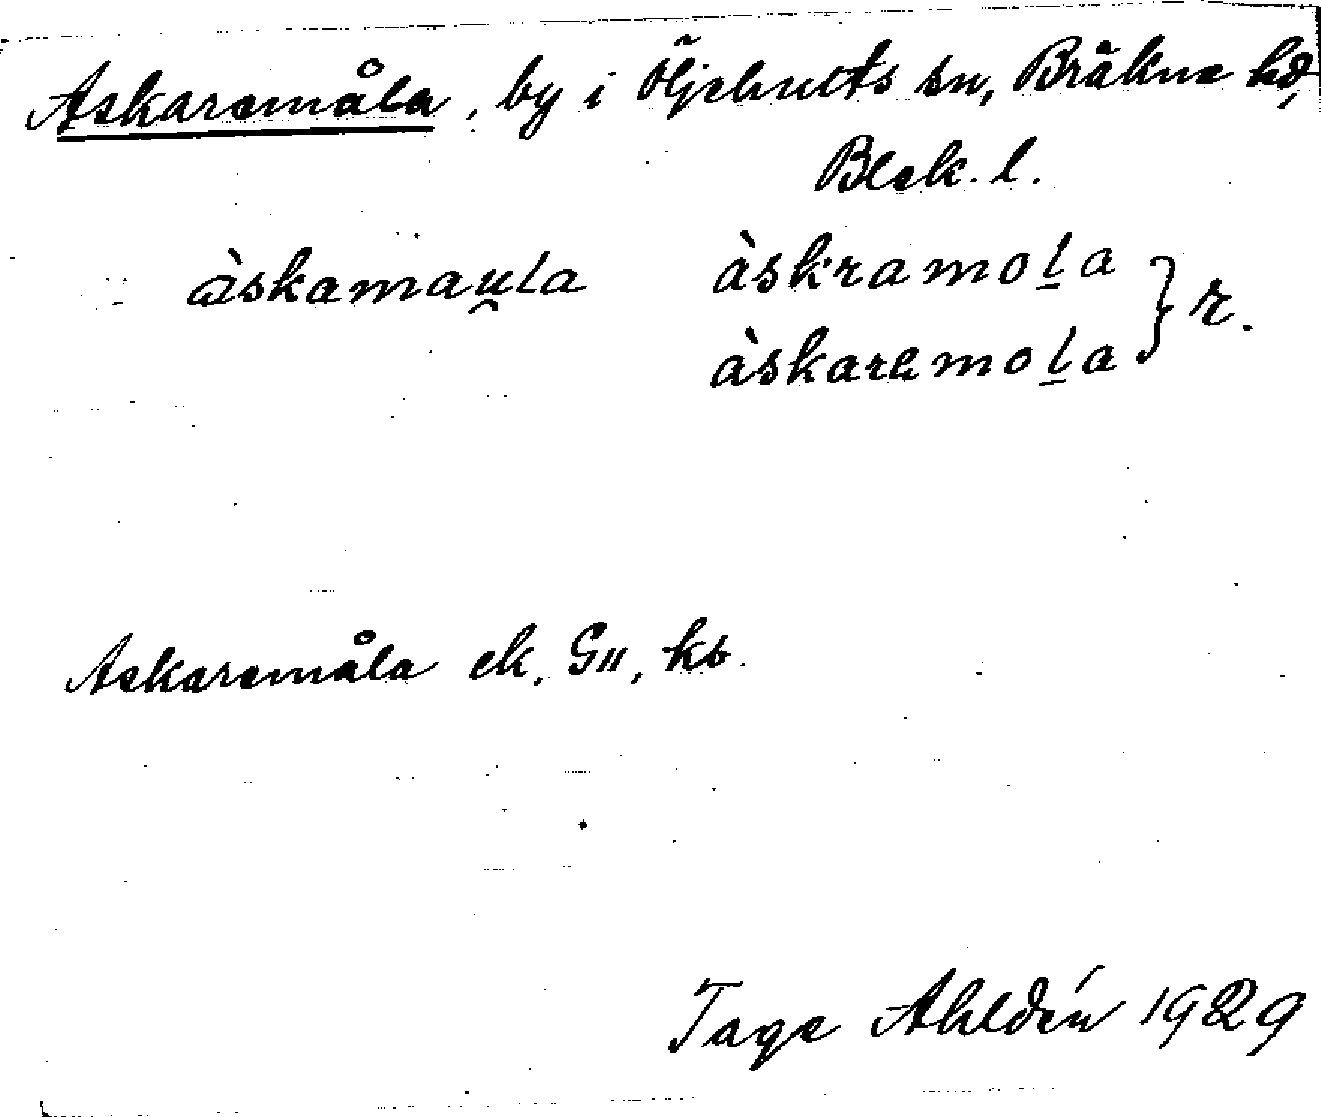 Askaremåla, by i Öljehults sn, Bräkne hd,
Blek. l.
àskamau̯la àskramoḻa } r.
àskaremoḻa
Askaremåla ek, GII, kb.
Tage Ahldén 1929